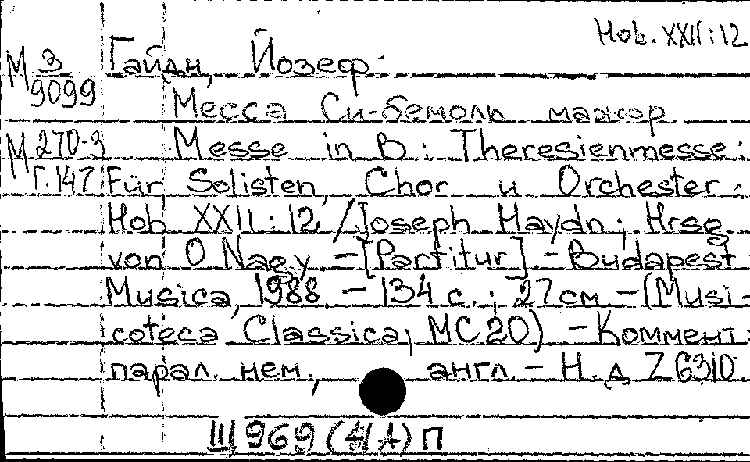 Hob. XXII:12
М З/9099 Гайдн, Йозеф.
Месса Си-бемоль мажор
М 270-3 Messe in B: Theresienmesse:
Г.147 Für Solisten, Chor u Orchester.
Hob XXII:12 / Joseph Haydn; Hrsg
von O Nagy - [Partitur] - Budapest
Musica, 1988 - 134 с.; 27 см - (Musi-
coteca Classica; MC 20) - Коммент
парал. нем., англ. - Н. д Z 6310
III, 969 (41А) П